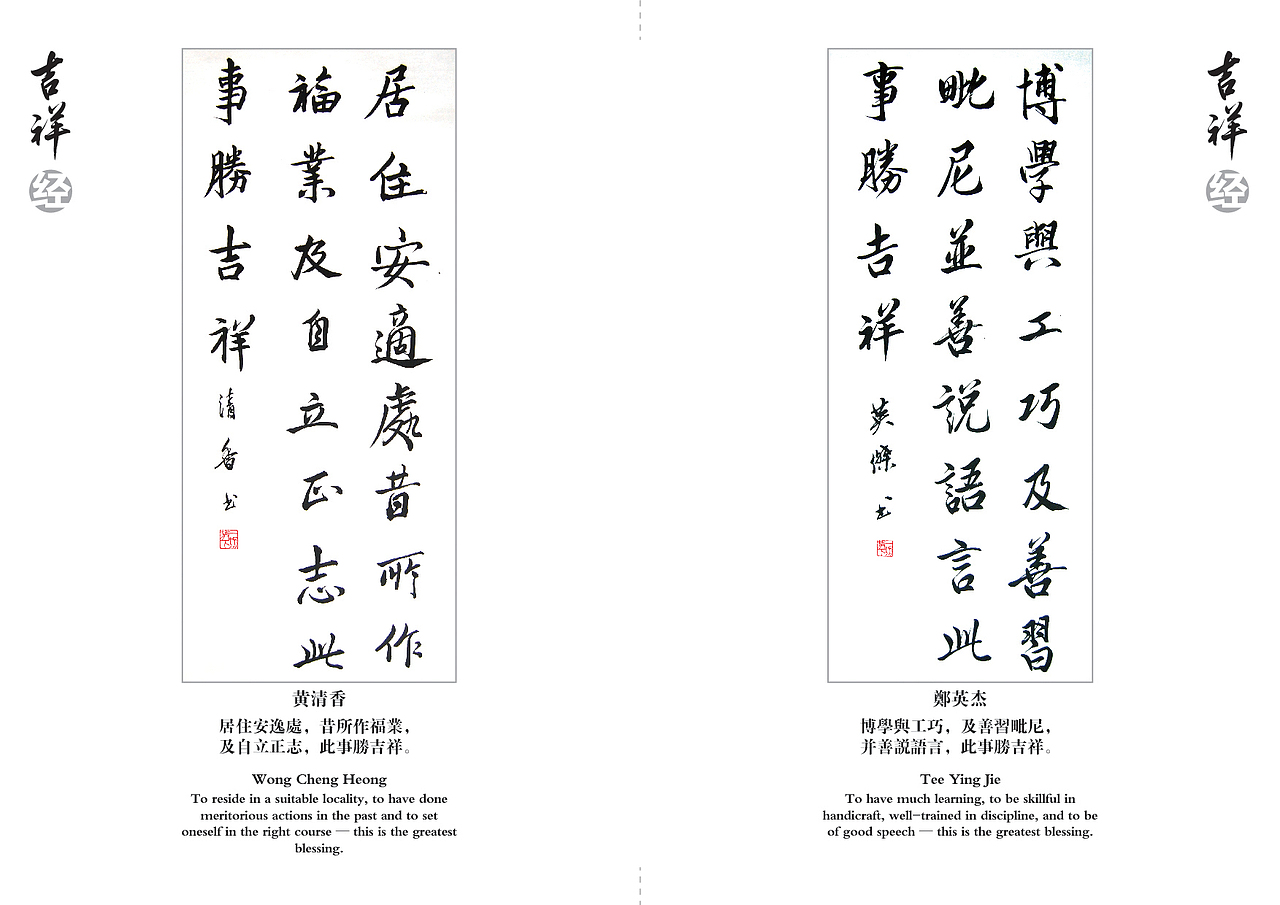 吉祥经
居住安適處昔所作
福業及自立正志此
事勝吉祥
清香书
黄清香
居住安逸處，昔所作福業，
及自立正志，此事勝吉祥。
Wong Cheng Heong
To reside in a suitable locality, to have done
meritorious actions in the past and to set
oneself in the right course — this is the greatest
blessing.
吉祥经
博學與工巧及善習
毗尼並善説語言此
事勝吉祥
英傑书
鄭英杰
博學與工巧，及善習毗尼，
并善説語言，此事勝吉祥。
Tee Ying Jie
To have much learning, to be skillful in
handicraft, well-trained in discipline, and to be
of good speech — this is the greatest blessing.